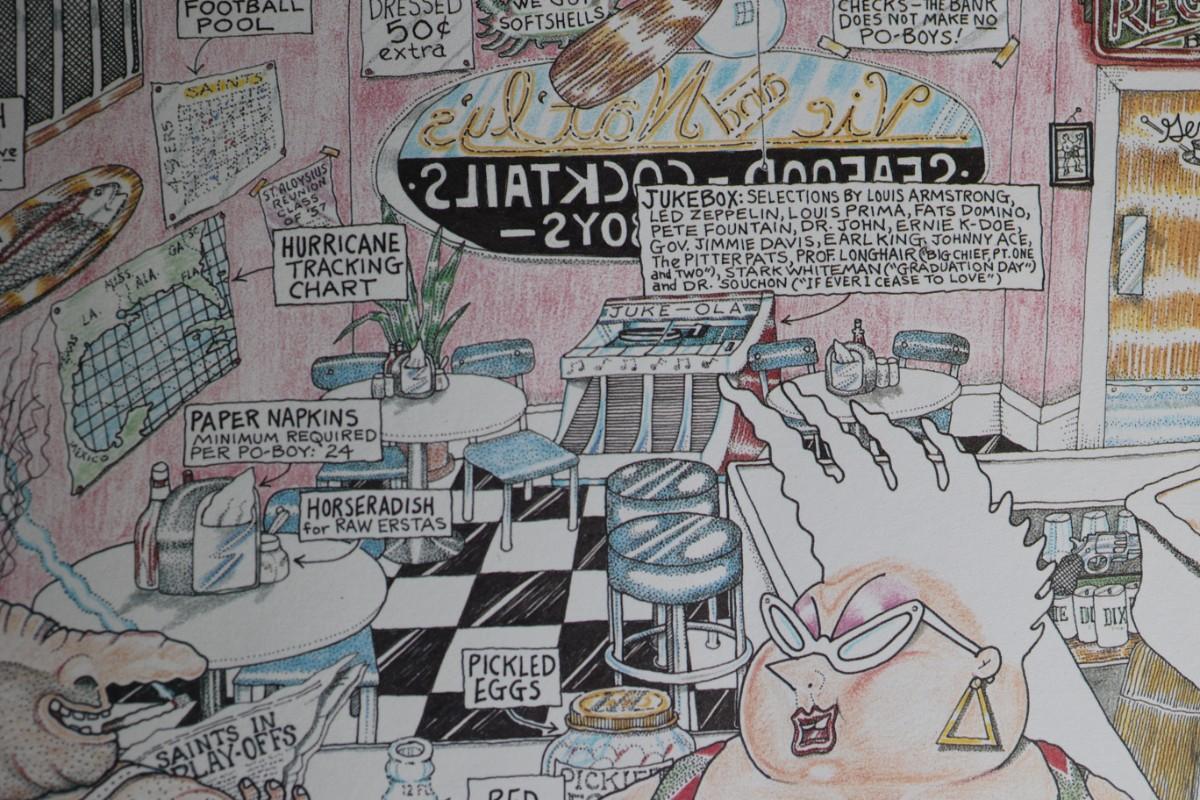 FOOTBALL
POOL
DRESSED
50¢
extra
WE GOT
SOFTSHELLS
CHECKS - THE BANK
DOES NOT MAKE NO
PO-BOYS!
SAINTS
49ERS
Vic and Nat'ly's
SEAFOOD - COCKTAILS
BOYS -
ST. ALOYSIUS
REUNION
CLASS
OF '57
HURRICANE
TRACKING
CHART
MISS.
ALA.
GA.
FLA
LA.
MEXICO
JUKEBOX: SELECTIONS BY LOUIS ARMSTRONG,
LED ZEPPELIN, LOUIS PRIMA, FATS DOMINO,
PETE FOUNTAIN, DR. JOHN, ERNIE K-DOE,
GOV. JIMMIE DAVIS, EARL KING, JOHNNY ACE,
The PITTER PATS, PROF. LONGHAIR ("BIG CHIEF, PT. ONE
and TWO"), STARK WHITEMAN ("GRADUATION DAY")
and DR. SOUCHON ("IF EVER I CEASE TO LOVE")
JUKE-OLA
PAPER NAPKINS
MINIMUM REQUIRED
PER PO-BOY: 24
HORSERADISH
for RAW ERSTAS
PICKLED
EGGS
SAINTS IN
PLAY-OFFS
DIX
12 FL.